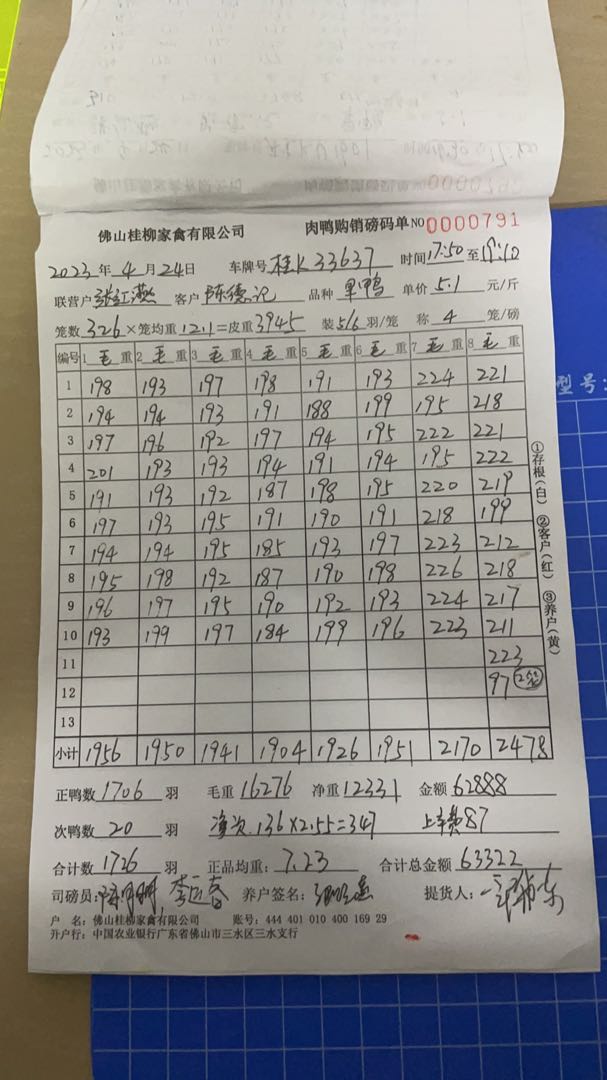 佛山桂柳家禽有限公司 肉鸭购销磅码单 NO 0000791
2023年4月24日 车牌号 桂K33637 时间17:50至19:10
联营户 客户 陈德记 品种 单价 5.1 元/斤
笼数326×笼均重12.1=皮重3945 装5/6羽/笼 称4笼/磅
编号 1毛重 2毛重 3毛重 4毛重 5毛重 6毛重 7毛重 8毛重
1 198 193 197 198 191 193 224 221
2 194 194 193 191 188 199 195 218
3 197 196 192 197 194 195 222 221
4 201 193 193 194 191 194 195 222
5 191 193 192 187 198 195 220 219
6 197 193 195 191 190 191 218 199
7 194 194 195 185 193 197 223 212
8 195 198 192 187 190 198 226 218
9 196 197 195 190 192 193 224 217
10 193 199 197 184 199 196 223 211
11 223
12 97 2笼
13
小计 1956 1950 1941 1904 1926 1951 2170 2478
正鸭数1706羽 毛重16276 净重12331 金额62888
次鸭数20羽 净次136×2.55=347 上车费87
合计数1726羽 正品均重:7.23 合计总金额63322
司磅员: 养户签名: 提货人:
户 名:佛山桂柳家禽有限公司 账号:444 401 010 400 169 29
开户行:中国农业银行广东省佛山市三水区三水支行
①存根(白) ②客户(红) ③养户(黄)
型号: